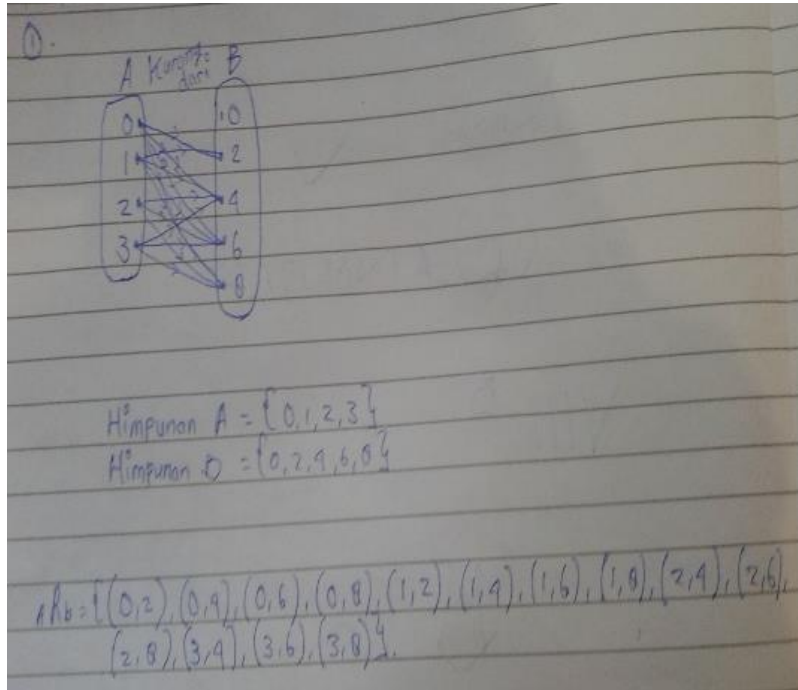 ①.
A Kurang dari B
0 0
1 2
2 4
3 6
8
Himpunan A = {0, 1, 2, 3}
Himpunan B = {0, 2, 4, 6, 8}
ARb = {(0,2), (0,4), (0,6), (0,8), (1,2), (1,4), (1,6), (1,8), (2,4), (2,6),
(2,8), (3,4), (3,6), (3,8)}.